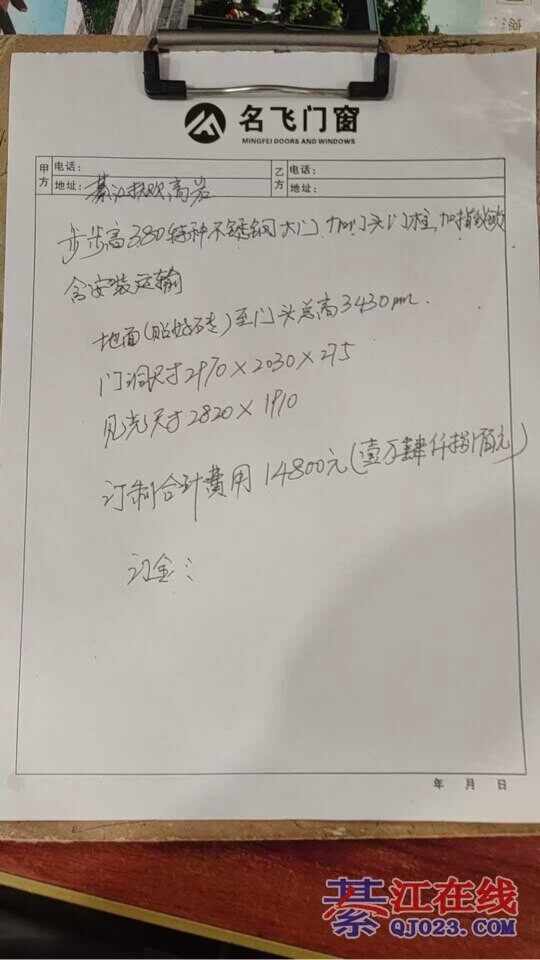 名飞门窗
MINGFEI DOORS AND WINDOWS
甲方 电话： 乙方 电话：
地址：綦江扶欢高岩 地址：
步步高380特种不锈钢大门加门头门柱，加指纹
含安装运输
地面(贴好砖)至门头总高3430mm.
门洞尺寸2970×2030×275
见光尺寸2820×1910
订制合计费用14800元(壹万肆仟捌佰元)
订金：
年 月 日
綦江在线
QJ023.COM